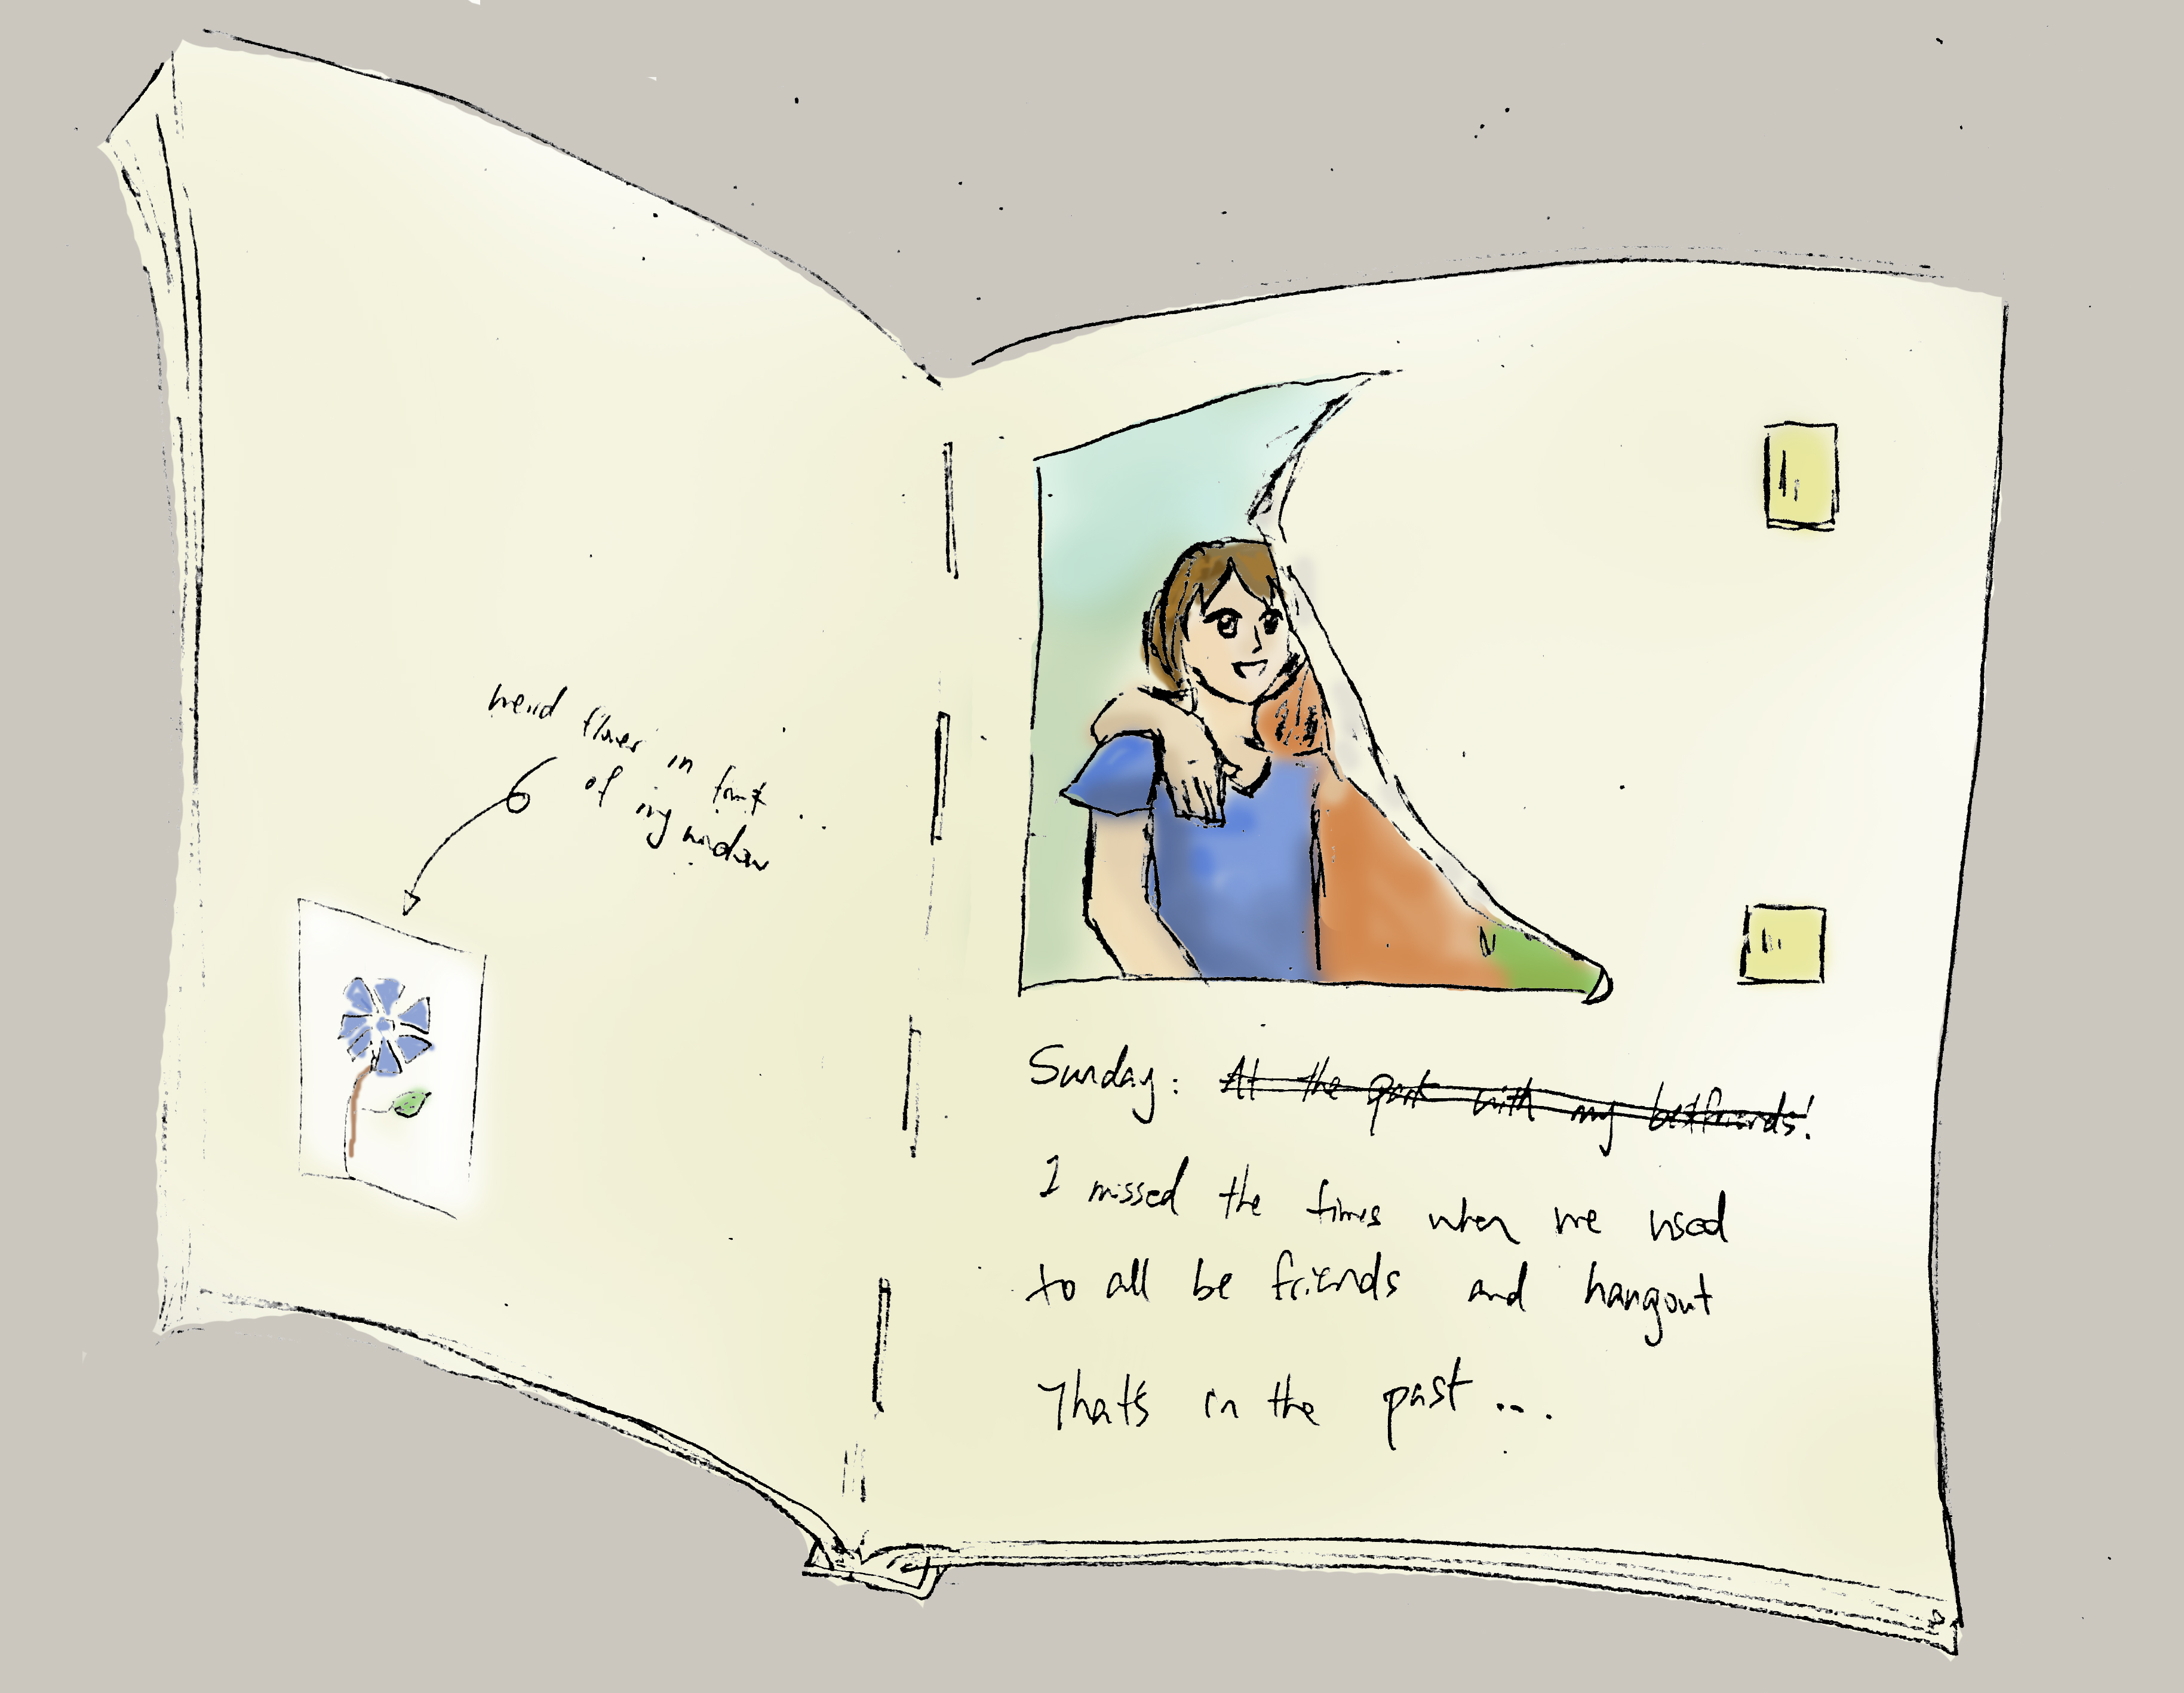 weird flower in front
of my window
Sunday: At the park with my bestfriends!
I missed the times when we used
to all be friends and hangout
That's in the past ...